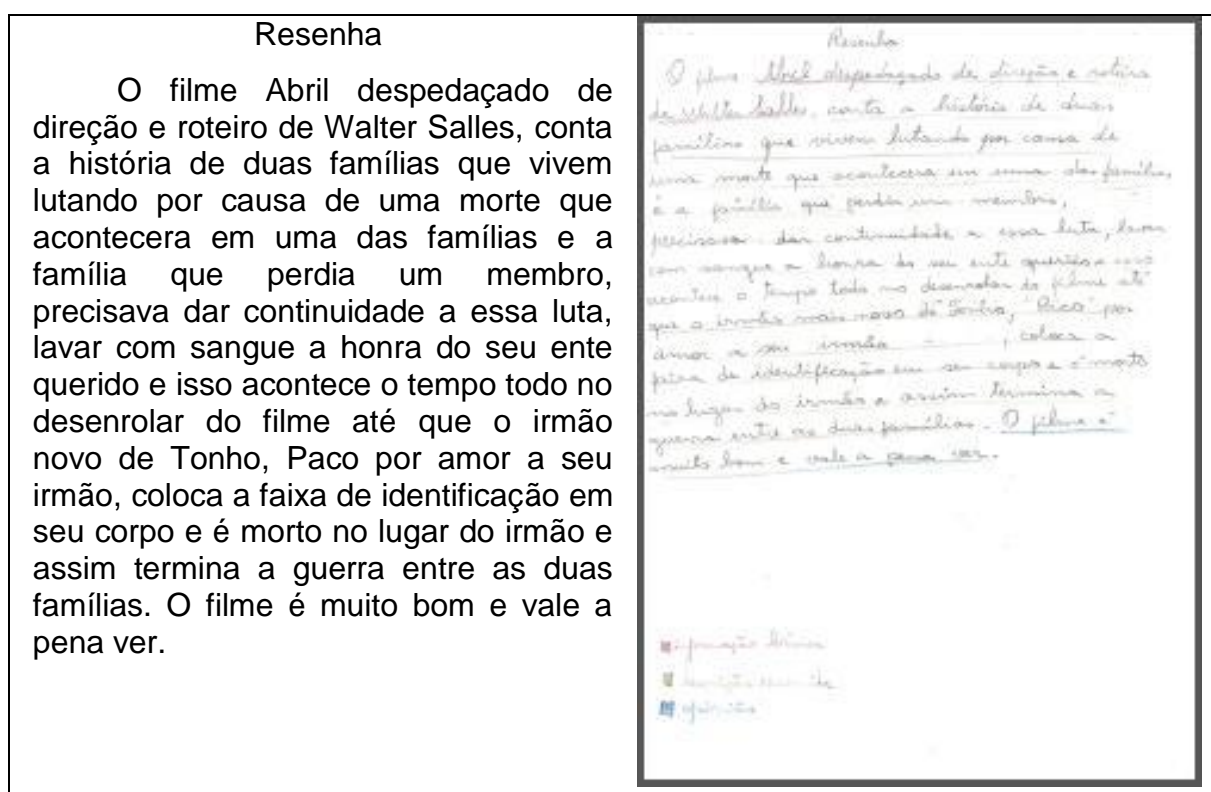 Resenha
O filme Abril despedaçado de
direção e roteiro de Walter Salles, conta
a história de duas famílias que vivem
lutando por causa de uma morte que
acontecera em uma das famílias e a
família que perdia um membro,
precisava dar continuidade a essa luta,
lavar com sangue a honra do seu ente
querido e isso acontece o tempo todo no
desenrolar do filme até que o irmão
novo de Tonho, Paco por amor a seu
irmão, coloca a faixa de identificação em
seu corpo e é morto no lugar do irmão e
assim termina a guerra entre as duas
famílias. O filme é muito bom e vale a
pena ver.
Resenha
O filme Abril despedaçado de direção e roteiro
de Walter Salles, conta a história de duas
famílias que vivem lutando por causa de
uma morte que acontecera em uma das famílias,
e a família que perdia um membro,
precisava dar continuidade a essa luta, lavar
com sangue a honra do seu ente querido e isso
acontece o tempo todo no desenrolar do filme até
que o irmão mais novo de Tonho, "Paco" por
amor a seu irmão , coloca a
faixa de identificação em seu corpo e é morto
no lugar do irmão e assim termina a
guerra entre as duas famílias. O filme é
muito bom e vale a pena ver.
opinião